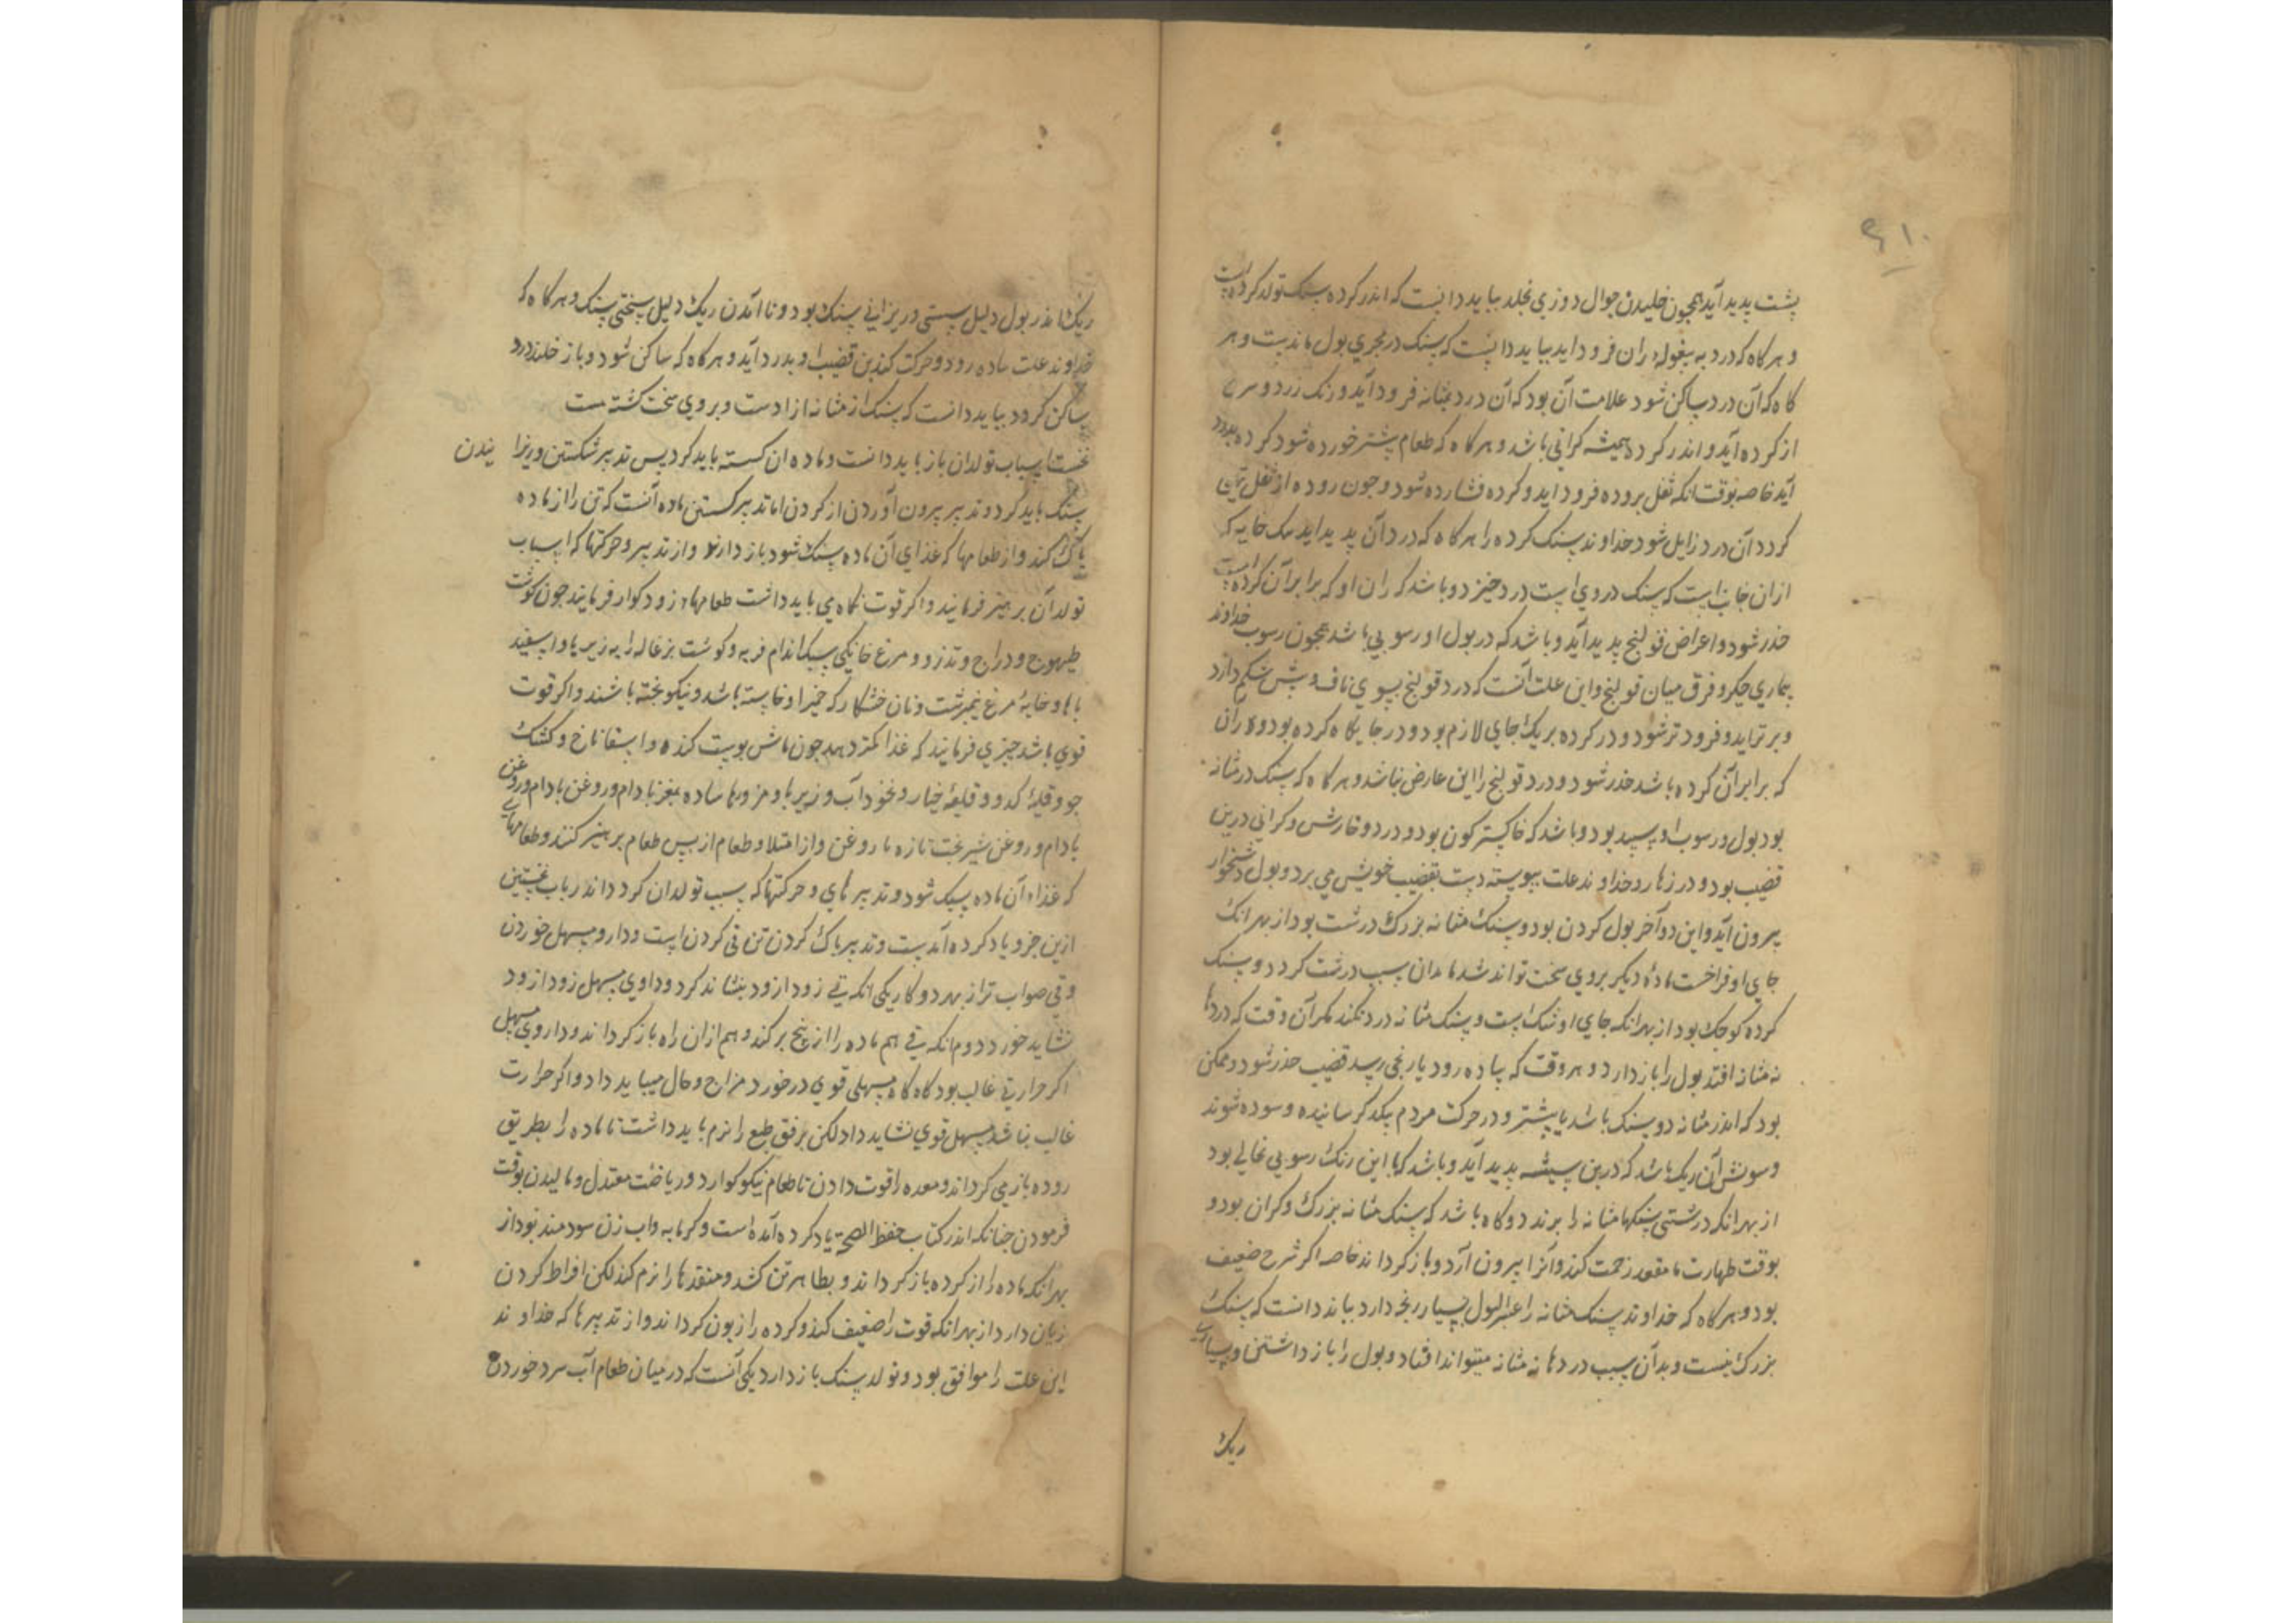 ۶۱۰
پشت پدید آید همچون خلیدن جوال دوزی بخلد بباید دانست که اندر کرده سنک تولد کرده است
و هر کاه که درد به بیغوله ران فرود آید بباید دانست که سنک در مجری بول ماندست و هر
کاه که آن درد ساکن شود علامت آن بود که آن درد بمثانه فرود آید و رنک زرد و سرخ
از کرده آید و اندر کرده همیشه کرانی باشد و هر کاه که طعام بیشتر خورده شود کرده بدرد
آید خاصه بوقت انکه ثفل بروده فرود آید و کرده فشارده شود و جون روده از ثفل تهی
کردد آن درد زایل شود خداوند سنک کرده را هر کاه که درد آن پدید آید خایه که
از ان جانب است که سنک در وی است درد خیزد و باشد که ران او که برابر آن کرده است
خدر شود و اعراض قولنج پدید آید و باشد که در بول او رسوبی باشد همجون رسوب خداوند
بیماری جکر و فرق میان قولنج و این علت آنست که درد قولنج بسوی ناف و پیش شکم دارد
و بر تر آید و فرود تر شود و درد کرده بر یک جای لازم بود و در جایکاه کرده بود و ران
که برابر آن کرده باشد خدر شود و درد قولنج را این عارض نباشد و هر کاه که سنک در مثانه
بود بول و رسوب او سپید بود و باشد که خاکستر کون بود و درد و خارش و کرانی در بن
قضیب بود و در زهار و خداوند علت پیوسته دست بقضیب خویش می برد و بول دشخوار
بیرون آید و این در آخر بول کردن بود و سنک مثانه بزرک و درشت بود از بهر انک
جای او فراخست ماده دیکر بر وی سخت تواند شد بدان سبب درشت کردد و سنک
کرده کوجک بود از بهر انکه جای او تنک است و سنک مثانه درد نکند مکر آن وقت که در دها
نه مثانه افتد بول را باز دارد و هر وقت که پیاده رود یا رنجی رسد قضیب خدر شود و ممکن
بود که اندر مثانه دو سنک باشد یا بیشتر و در حرکت مردم بیکدیکر ساییده و سوده شوند
و سونش آن ریک باشد که در بن شیشه پدید آید و باشد که با این رنک رسوبی نخالی بود
از بهر انکه درشتی سنکها مثانه را برندد و کاه باشد که سنک مثانه بزرک و کران بود و
بوقت طهارت با مقعد زحمت کند و آنرا بیرون آرد و باز کرداند خاصه اکر شرح ضعیف
بود و هر کاه که خداوند سنک مثانه را عسر البول بسیار رنجه دارد بباید دانست که سنک
بزرک نیست و بدان سبب در دهانه مثانه میتواند افتاد و بول را باز داشتن و بسیاری
ریک
ریک اندر بول دلیل سستی و ریزانی سنک بود و نا آمدن ریک دلیل سختی سنک و هر کاه که
خداوند علت پیاده رود و حرکت کند بن قضیب او بدرد آید و هر کاه که ساکن شود و باز خلد درد
ساکن کردد بباید دانست که سنک از مثانه ازادست و بر وی سخت نکشته ست
نخست اسباب تولد ان باز باید دانست و ماده ان کسسته باید کرد پس تدبیر شکستن و ریزا نیدن
سنک باید کرد و تدبیر بیرون آوردن از کردن اما تدبیر کسستن ماده آنست که تن را از ماده
پاک کند و از طعامها که غذای آن ماده سنک شود باز دارند و از تدبیر و حرکتها که اسباب
تولد آن برهیز فرمایند و اکر قوت نکاه می باید داشت طعامهاء زود کوار فرمایند جون کوشت
طیهوج و دراج و تذرو و مرغ خانکی سبک اندام فربه و کوشت بزغاله را به زیربا و اسفید
باها و خایه مرغ نیمبرشت و نان خشکار که خمیر او خاسته باشد و نیکو پخته باشند و اکر قوت
قوی باشد جیزی فرمایند که غذا کمتر دهد جون ماش بوست کنده و اسفاناخ و کشک
جو و قلیه کدو و قلیه خیار و نخود آب و زیربا و مزوره ها ساده بمغز بادام و روغن بادام و روغن
بادام و روغن شیر بخت تازه با روغن و از امتلا و طعام از پس طعام برهیز کنند و طعامهای
که غذاء آن ماده سنک شود و تدبیر های و حرکتها که سبب تولد ان کردد اندر باب نخستین
ازین جزو یاد کرده آمدست و تدبیر پاک کردن تن قی کردن است و دارو مسهل خوردن
و قی صواب تر از بهر دو کار یکی انکه قی زود از زود بنشاند کرد و داروی مسهل زود از زود
نشاید خورد دوم انکه قی هم ماده را از بیخ بر کند و هم از ان راه باز کرداند و داروی مسهل
اکر حرارتی غالب بود کاه کاه مسهلی قوی در خورد مزاج و حال میباید داد و اکر حرارت
غالب نباشد مسهل قوی نشاید داد لکن برفق طبع را نرم باید داشت تا ماده را بطریق
روده باز می کرداند و معده را قوت دادن تا طعام نیکو کوارد و ریاضت معتدل و مالیدن بوقت
فرمودن جنانکه اندر کتاب حفظ الصحة یاد کرده آمده است و کرمابه و اب زن سودمند بود از
بهر انکه ماده را از کرده باز کرداند و بظاهر تن کشد و منفذها را نرم کند لکن افراط کردن
زیان دارد از بهر انکه قوت را ضعیف کند و کرده را زبون کرداند و از تدبیرها که خداوند
این علت را موافق بود و تولد سنک باز دارد یکی آنست که در میان طعام آب سرد خوردن